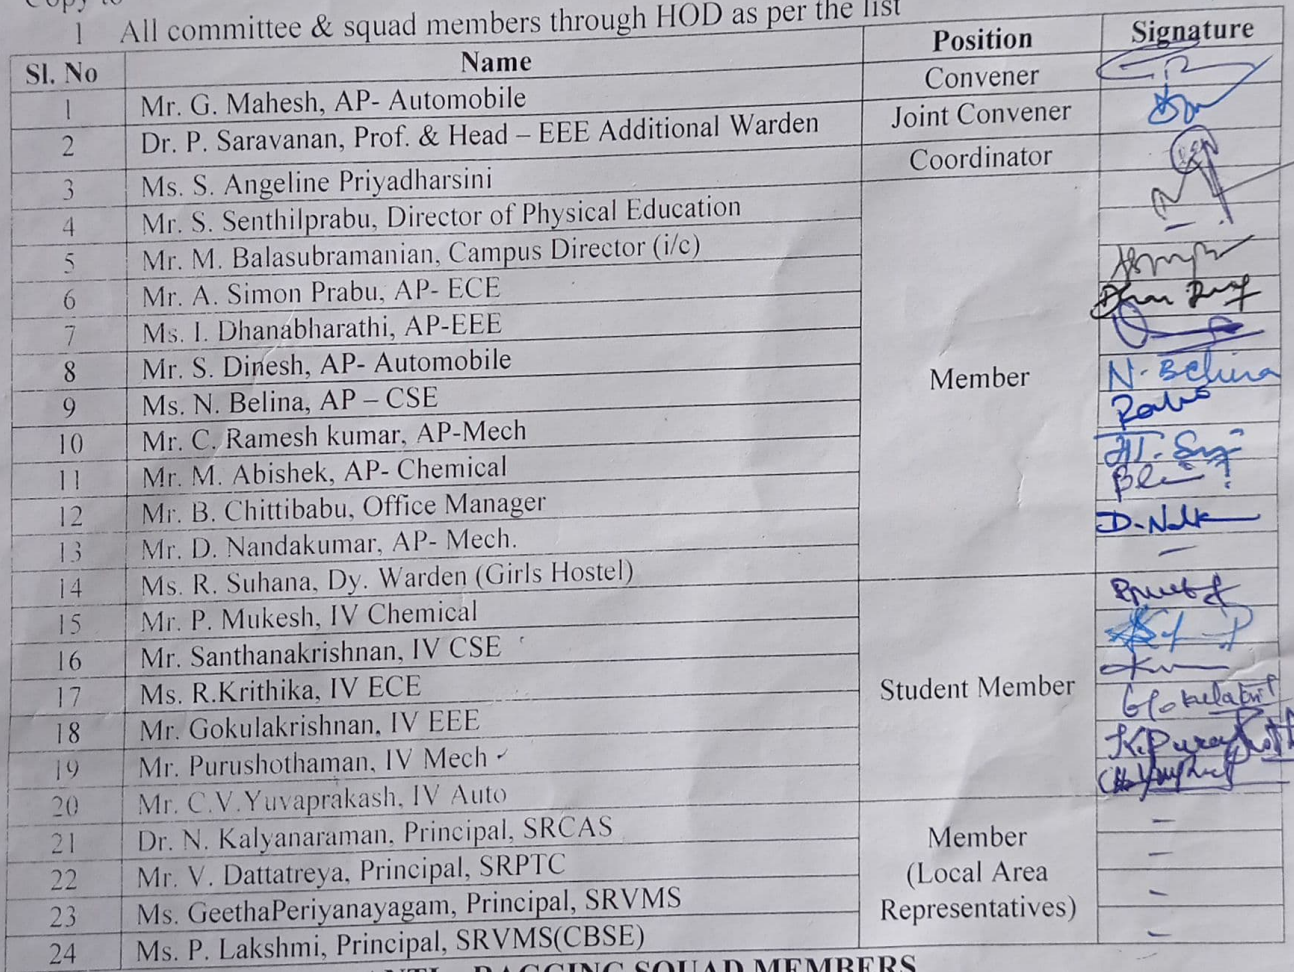 Copy to
1 All committee & squad members through HOD as per the list
Sl. No Name Position Signature
1 Mr. G. Mahesh, AP- Automobile Convener
2 Dr. P. Saravanan, Prof. & Head – EEE Additional Warden Joint Convener
3 Ms. S. Angeline Priyadharsini Coordinator
4 Mr. S. Senthilprabu, Director of Physical Education
5 Mr. M. Balasubramanian, Campus Director (i/c) –
6 Mr. A. Simon Prabu, AP- ECE
7 Ms. I. Dhanabharathi, AP-EEE
8 Mr. S. Dinesh, AP- Automobile
Member
9 Ms. N. Belina, AP – CSE N. Belina
10 Mr. C. Ramesh kumar, AP-Mech
11 Mr. M. Abishek, AP- Chemical
12 Mr. B. Chittibabu, Office Manager
13 Mr. D. Nandakumar, AP- Mech.
14 Ms. R. Suhana, Dy. Warden (Girls Hostel) –
15 Mr. P. Mukesh, IV Chemical
16 Mr. Santhanakrishnan, IV CSE
17 Ms. R.Krithika, IV ECE
Student Member
18 Mr. Gokulakrishnan, IV EEE
19 Mr. Purushothaman, IV Mech
20 Mr. C.V.Yuvaprakash, IV Auto
21 Dr. N. Kalyanaraman, Principal, SRCAS –
Member
22 Mr. V. Dattatreya, Principal, SRPTC –
(Local Area
23 Ms. GeethaPeriyanayagam, Principal, SRVMS –
Representatives)
24 Ms. P. Lakshmi, Principal, SRVMS(CBSE) –
RAGGING SQUAD MEMBERS